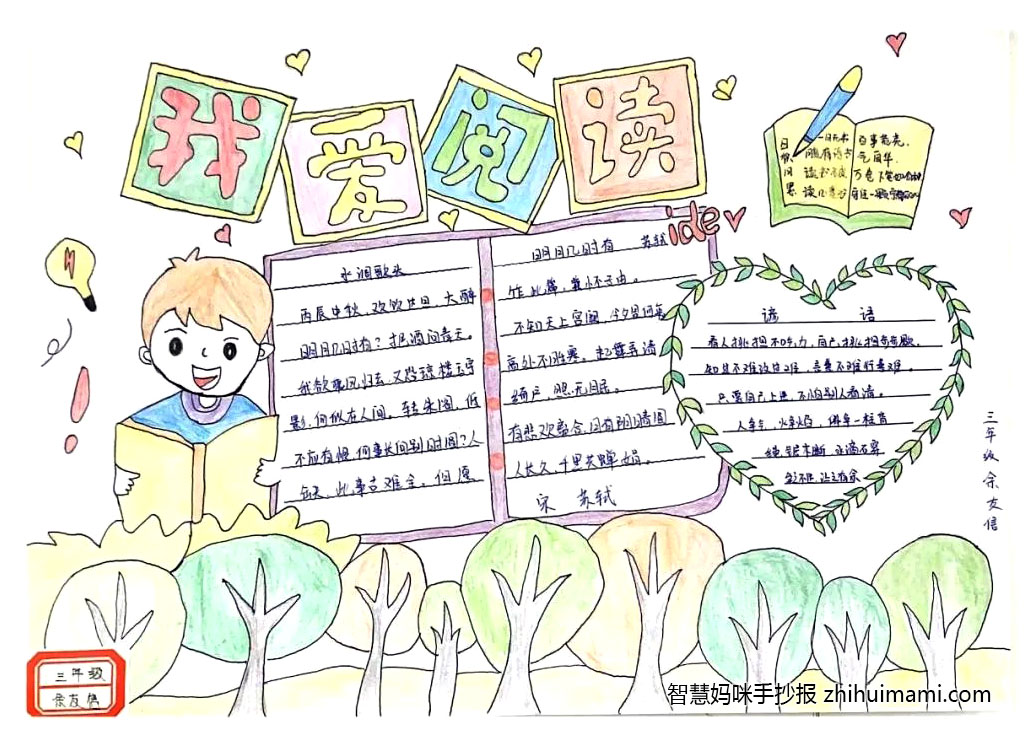 我爱阅读
水调歌头
丙辰中秋,欢饮达旦,大醉
明月几时有?把酒问青天。
我欲乘风归去,又恐琼楼玉宇
影,何似在人间。转朱阁,低
不应有恨,何事长向别时圆?人
缺,此事古难全。但愿
明月几时有 苏轼
作此篇,兼怀子由。
不知天上宫阙,今夕是何年
高处不胜寒。起舞弄清
绮户,照无眠。
有悲欢离合,月有阴晴圆
人长久,千里共婵娟。
宋 苏轼
ide
一日无书 百事荒芜。
谚 语
看人挑担不吃力,自己挑担步步歇。
知过不难改过难,言善不难行善难。
只要自己上进,不怕别人看清。
人争气,火争焰,佛争一炷香
绳锯木断,水滴石穿
三年级余友信
三年级
余友信
智慧妈咪手抄报 zhihuimami.com